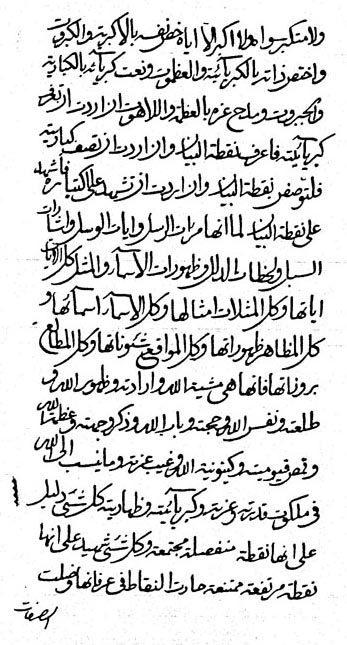 ولا متكبر سواه ولا اكبر الا اياه خص نفسه بالاكبرية والكبروت
واختص ذاته بالكبريائية والعظموت ونعت كبريائه بالكبارية
والجبروت ومدح عزه بالعظمة واللاهوت ان اردت ان تعرف
كبريائيته فاعرف نقطة البيان وان اردت ان تصف كباريته
فلتوصفن نقطة البيان وان اردت ان تشهد على اكبياره فأشهد
على نقطة البيان لما انها مرات الرسل وايات الوسل واشارات
السبل ولحظات الدلل وظهورات الاسماء والمثل كل الايات
اياتها وكل المثلات امثالها وكل الاسماء اسمائها و
كل المظاهر ظهوراتها وكل المواقع شئوناتها وكل المطالع
بروزاتها فانها هي مشية الله وارادته وظهور الله و
طلعته ونفس الله وحجته وباب الله وذكر وجهته وعظمة الله
وقيوميته وكينونية الله وغيب عزته وما ينسب الى الله
في ملكوت قدرته وعزته وكبريائيته وظهاريته كل شئ دليل
على انها نقطة منفصلة مجتمعة وكل شئ شهيد على انها
نقطة مرتفعة ممتنعة حارت النقاط في عرفانها وضلت
الصفات